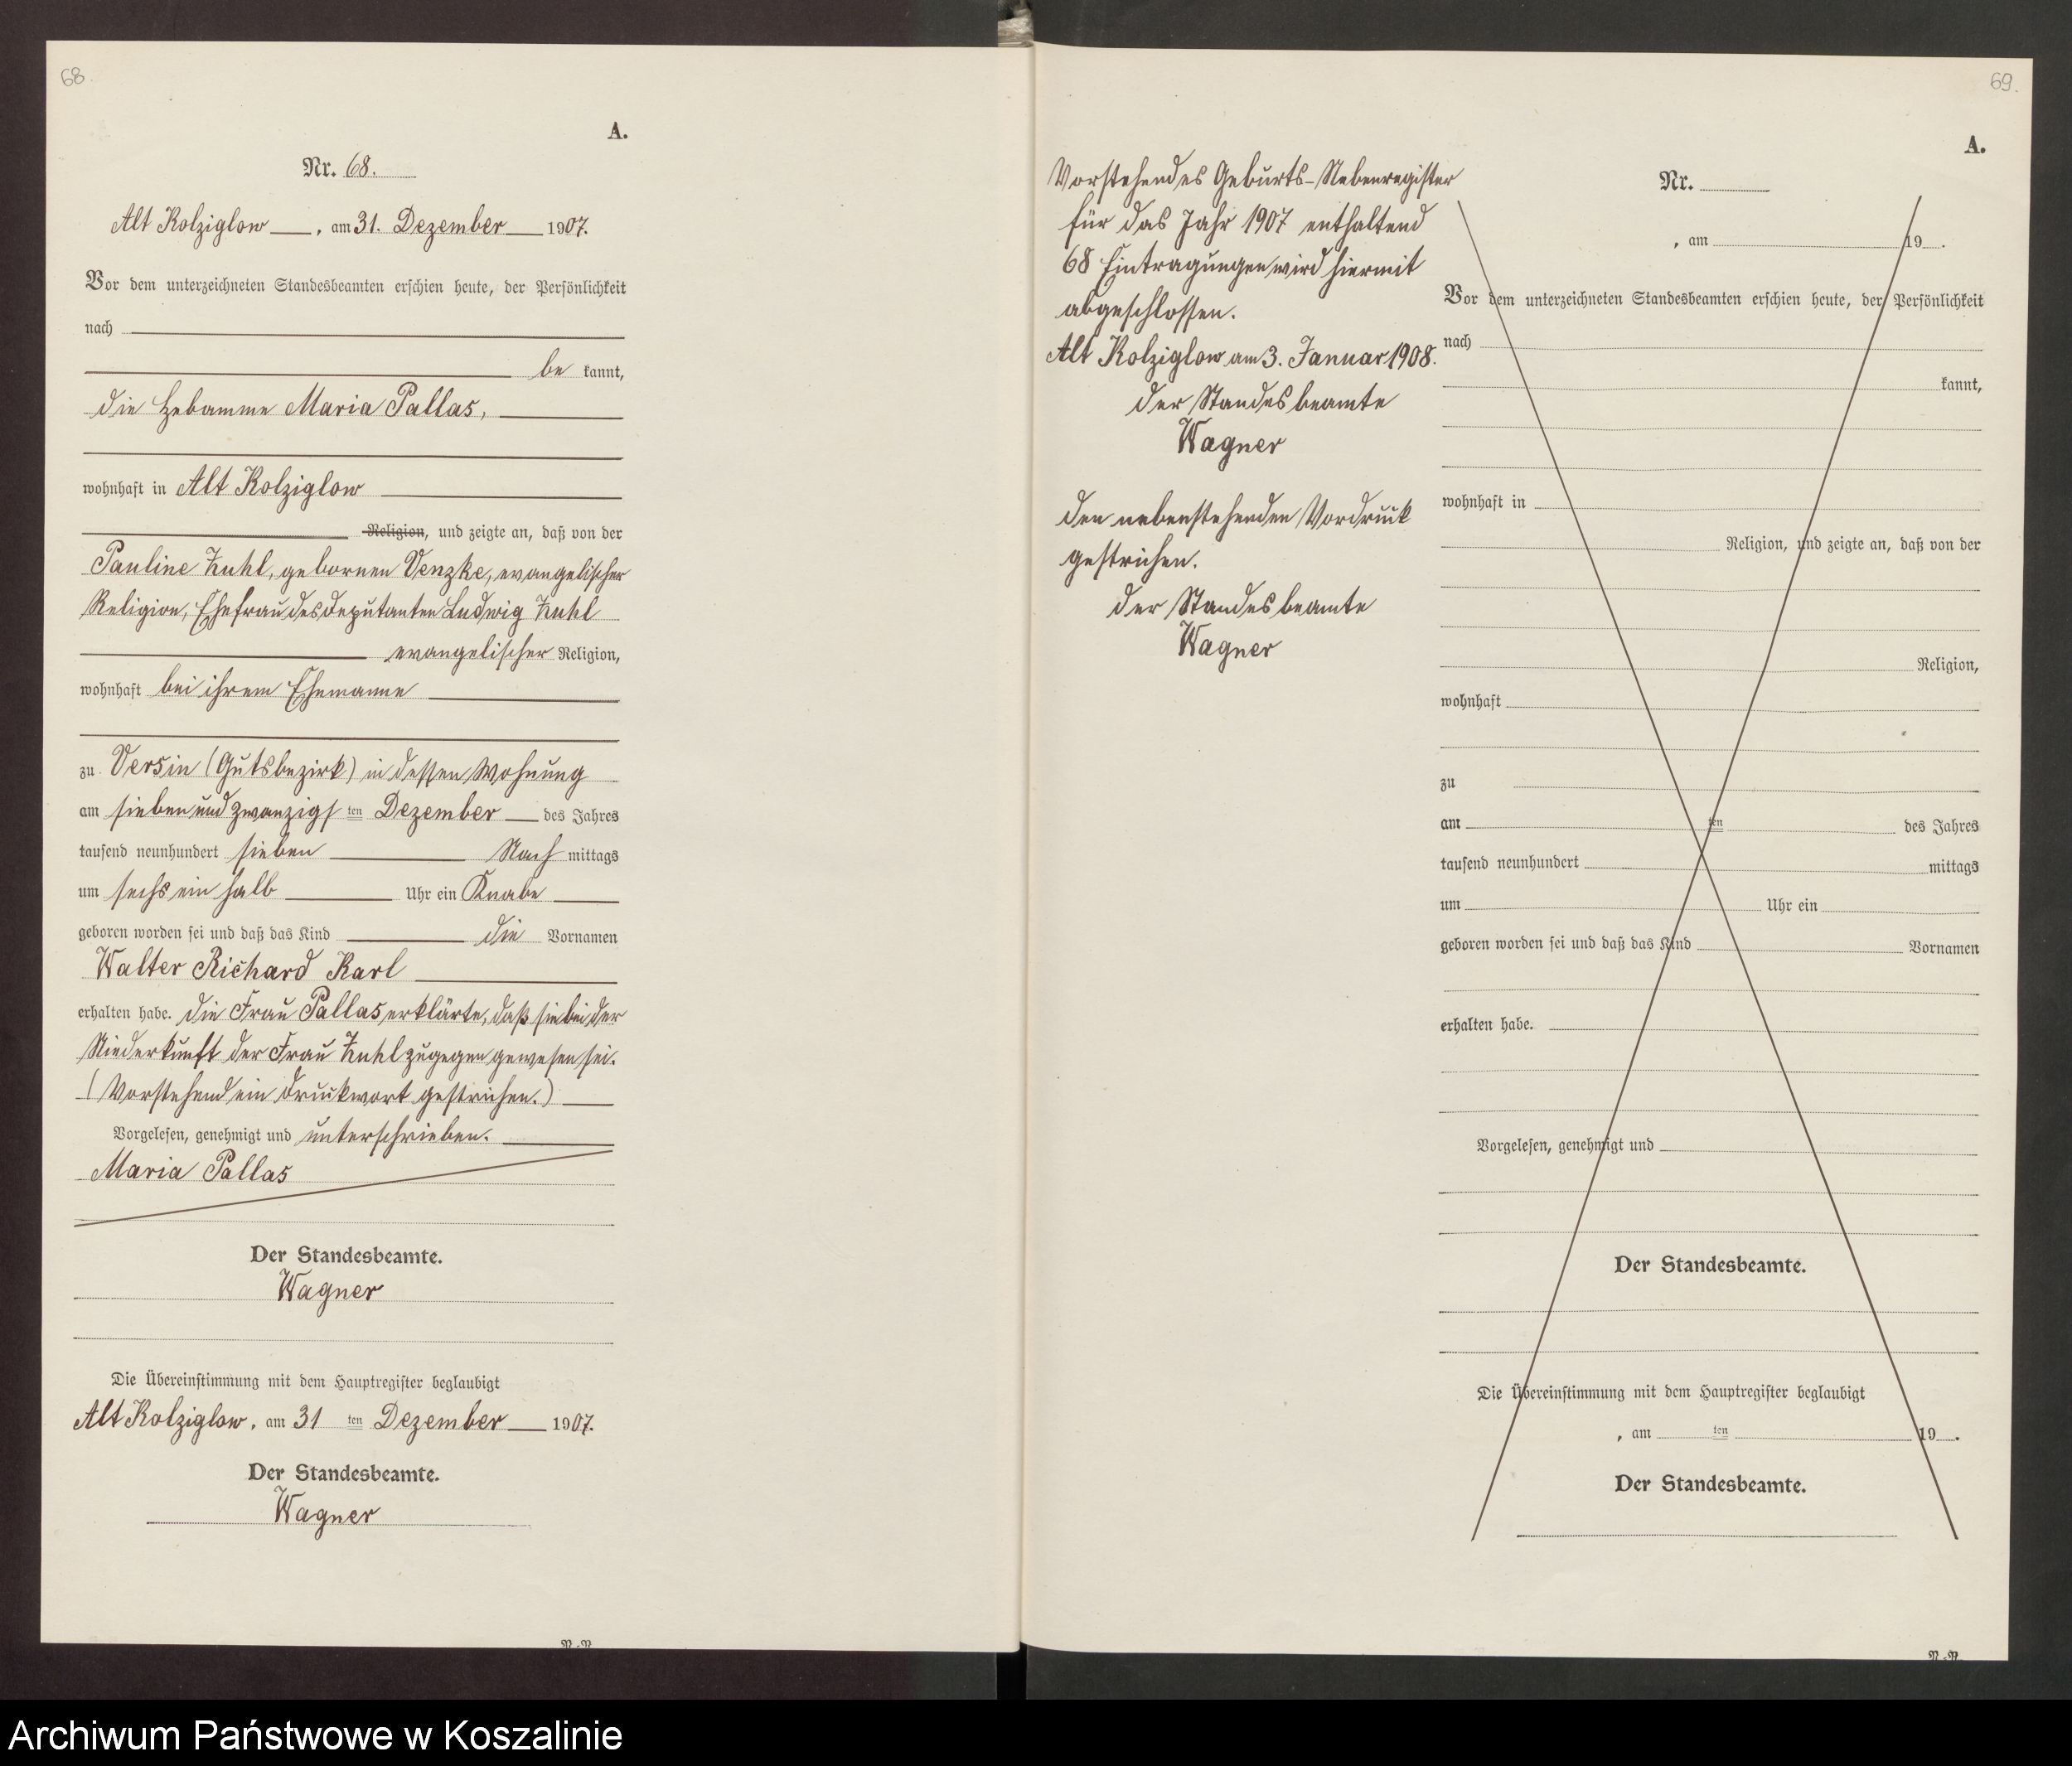 68.
A.
Nr. 68.
Alt Kolziglow, am 31. Dezember 1907.
Vor dem unterzeichneten Standesbeamten erschien heute, der Persönlichkeit
nach
be kannt,
die Hebamme Maria Pallas,
wohnhaft in Alt Kolziglow
Religion, und zeigte an, daß von der
Pauline Kuhl, gebornen Venzke, evangelischer
Religion, Ehefrau des Deputanten Ludwig Kuhl
evangelischer Religion,
wohnhaft bei ihrem Ehemanne
zu Versin (Gutsbezirk) in dessen Wohnung
am sieben und zwanzigs ten Dezember des Jahres
tausend neunhundert sieben Nach mittags
um sechs ein halb Uhr ein Knabe
geboren worden sei und daß das Kind die Vornamen
Walter Richard Karl
erhalten habe. Die Frau Pallas erklärte, daß sie bei der
Niederkunft der Frau Kuhl zugegen gewesen sei.
(Vorstehend ein Druckwort gestrichen.)
Vorgelesen, genehmigt und unterschrieben.
Maria Pallas
Der Standesbeamte.
Wagner
Die Übereinstimmung mit dem Hauptregister beglaubigt
Alt Kolziglow, am 31 ten Dezember 1907.
Der Standesbeamte.
Wagner
69.
A.
Vorstehendes Geburts-Nebenregister
für das Jahr 1907 enthaltend
68 Eintragungen wird hiermit
abgeschlossen.
Alt Kolziglow am 3. Januar 1908.
Der Standesbeamte
Wagner
Den nebenstehenden Vordruck
gestrichen.
Der Standesbeamte
Wagner
Nr.
, am 19 .
Vor dem unterzeichneten Standesbeamten erschien heute, der Persönlichkeit
nach
kannt,
wohnhaft in
Religion, und zeigte an, daß von der
Religion,
wohnhaft
zu
am ten des Jahres
tausend neunhundert mittags
um Uhr ein
geboren worden sei und daß das Kind Vornamen
erhalten habe.
Vorgelesen, genehmigt und
Der Standesbeamte.
Die Übereinstimmung mit dem Hauptregister beglaubigt
, am ten 19 .
Der Standesbeamte.
Archiwum Państwowe w Koszalinie